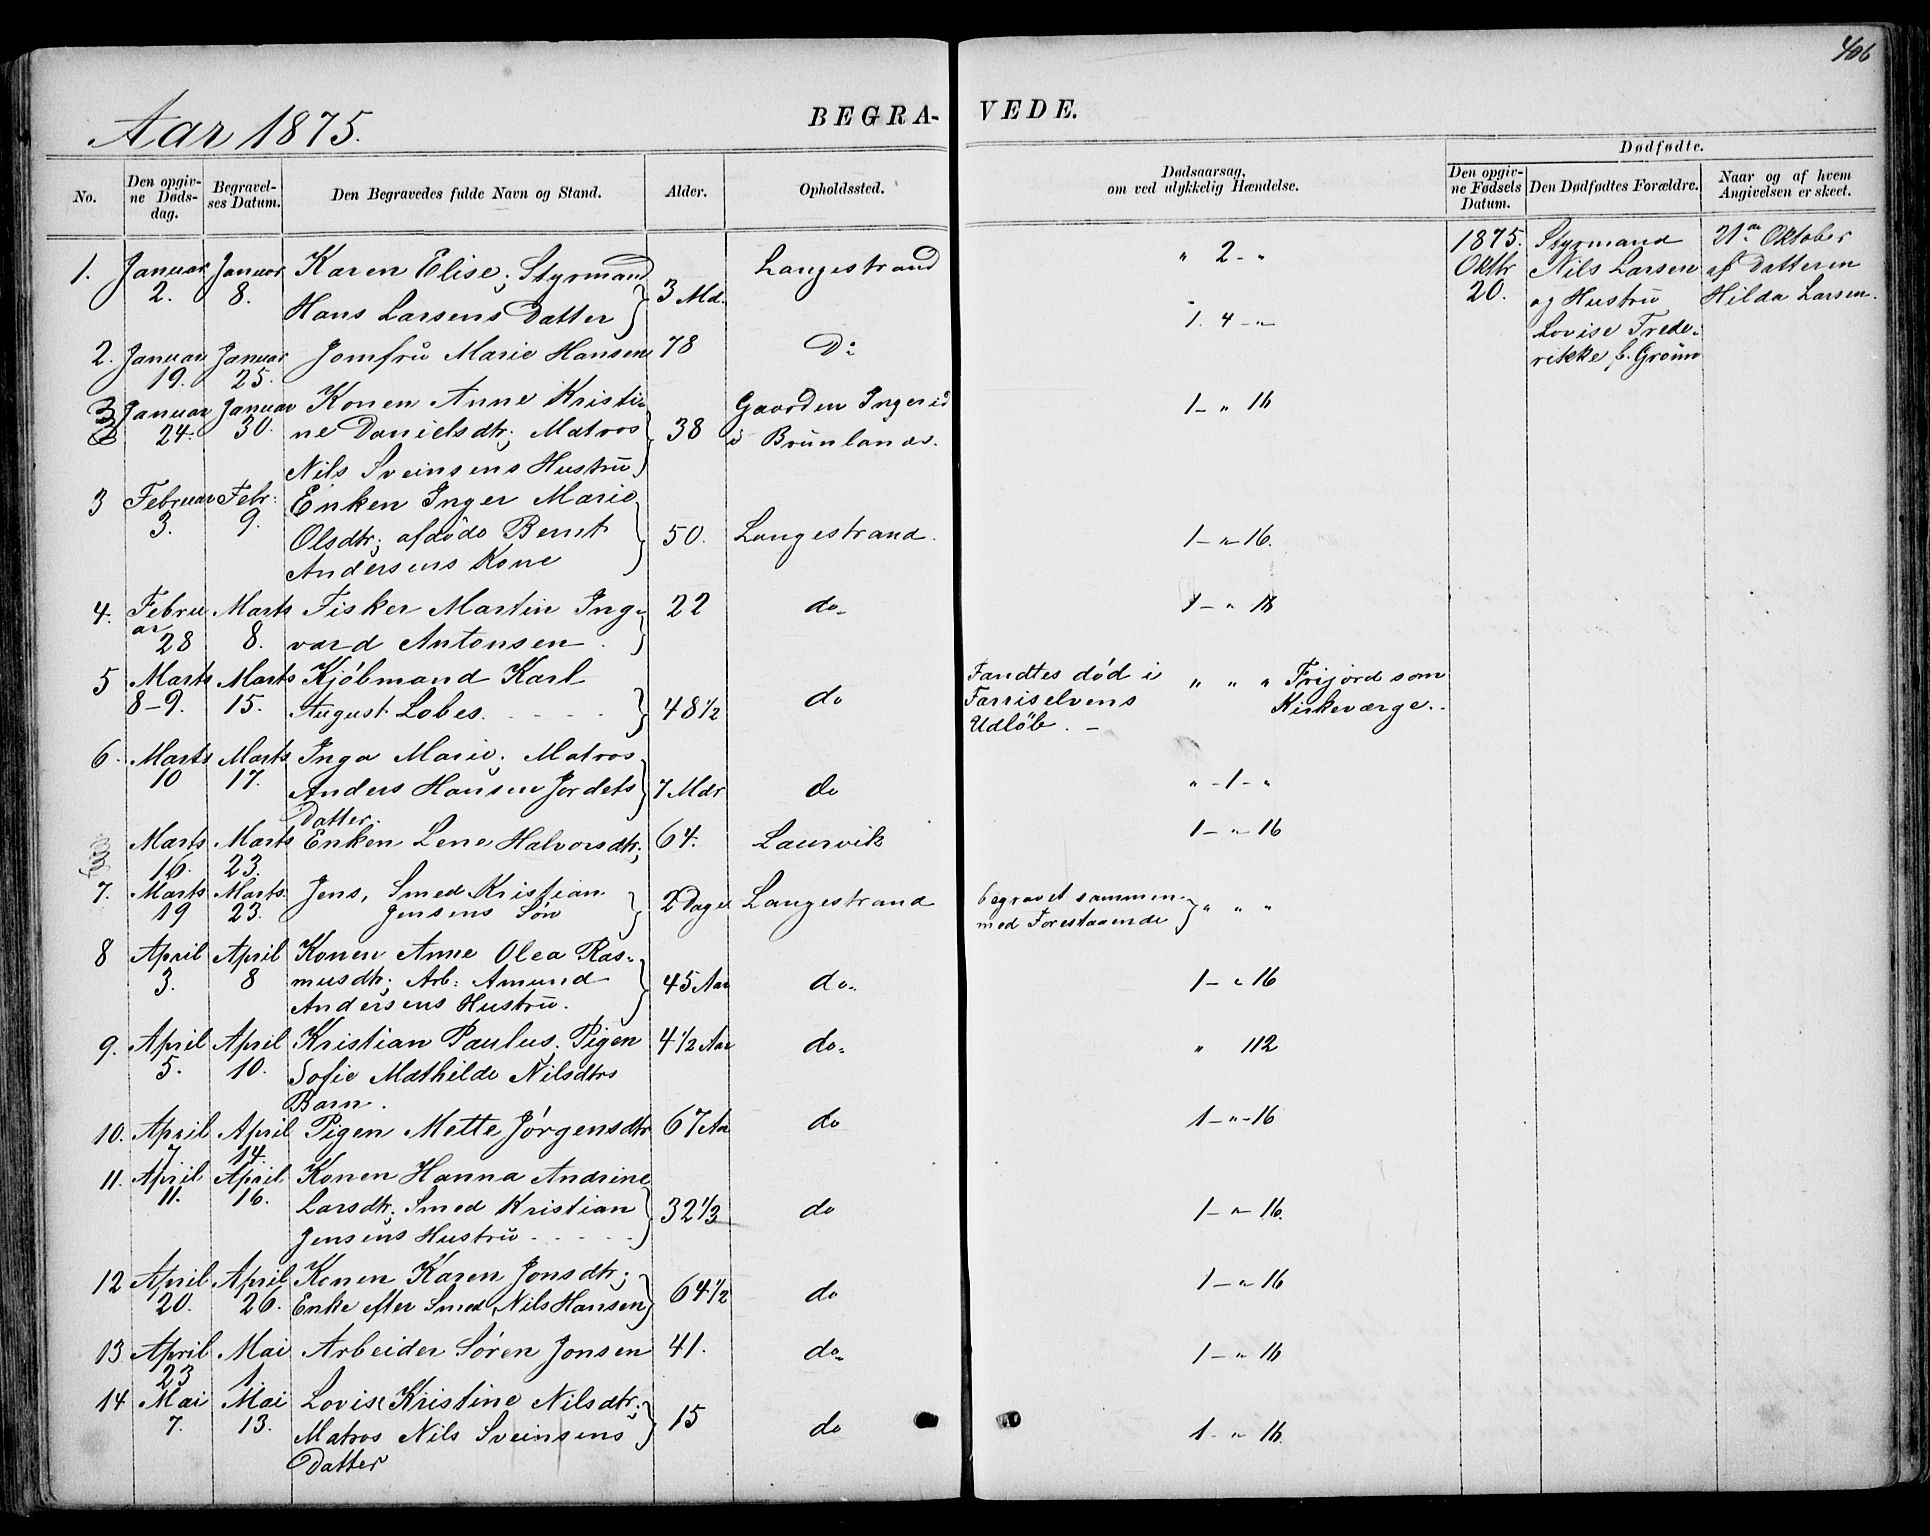 406
Aar 1875.
BEGRA-
VEDE.
No.
Den opgiv-
ne Døds-
dag.
Begravel-
ses Datum.
Den Begravedes fulde Navn og Stand.
Alder.
Opholdssted.
Dødsaarsag,
om ved ulykkelig Hændelse.
Dødfødte.
Den opgiv-
ne Fødsels
Datum.
Den Dødfødtes Forældre.
Naar og af hvem
Angivelsen er skeet.
1. Januar 2. Januar 8. Karen Elise; Styrmand
Hans Larsens Datter } 3 Md. Langestrand " 2 - "
1. 4 - "
1875. Oktbr 20.
Styrmand
Nils Larsen
og Hustru
Lovise Frede-
rikke f. Grønn
21 Oktober
af Datteren
Hilda Larsen.
2. Januar 19. Januar 25. Jomfru Marie Hansen 78 Do
3 Januar 24. Januar 30. Konen Anne Kristi-
ne Danielsdtr; Matros
Nils Sveinsens Hustru } 38 Gaarden Ingerid
i Brunlanæs. 1 - " 16
3 Februar 3. Febr: 9. Enken Inger Marie
Olsdtr; afdøde Bernt
Andersens Kone } 50. Langestrand. 1 - " 16.
4. Febru
ar 28 Marts 8. Fisker Martin Ing-
vard Antonsen. } 22 do 1 - " 18
5 Marts 8-9. Marts 15. Kjøbmand Karl
August Lobes. } 48 1/2 do Fandtes død i
Farriselvens
Udløb. -
" " " Frijord som
Kirkeværge.
6. Marts 10 Marts 17. Inga Marie; Matros
Anders Hansen Jordets
Datter. } 7 Mdr do " - 1 - "
Marts 16. Marts 23. Enken Lene Halvorsdtr; 64. Laurvik 1 - " 16
7. Marts 19 Marts 23. Jens, Smed Kristian
Jensens Søn } 2 Dage Langestrand begravet sammen
med Forestaaende } " " "
8 April 3. April 8 Konen Anne Olea Ras-
musdtr; Arb: Amund
Andersens Hustru. } 45 Aar do. 1 - " 16
9. April 5. April 10. Kristian Paulus. Pigen
Sofie Mathilde Nilsdtrs
Barn. 4 1/2 Aar do. " 112
10. April 7 April 14. Pigen Mette Jørgensdtr 67 Aar do 1 - " - 16
11. April 11. April 16. Konen Hanna Andrine
Larsdtr. Smed Kristian
Jensens Hustru } 32 1/3 do 1 - " 16.
12 April 20. April 26. Konen Karen Jonsdtr;
Enke efter Smed, Nils Hansen } 64 1/2 do 1 - " 16
13 April 23 Mai 1. Arbeider Søren Jonsen 41. do. 1 - " 16
14 Mai 7. Mai 13. Lovise Kristine Nilsdtr.
Matros Nils Sveinsens
Datter } 15 do 1 - " 16.